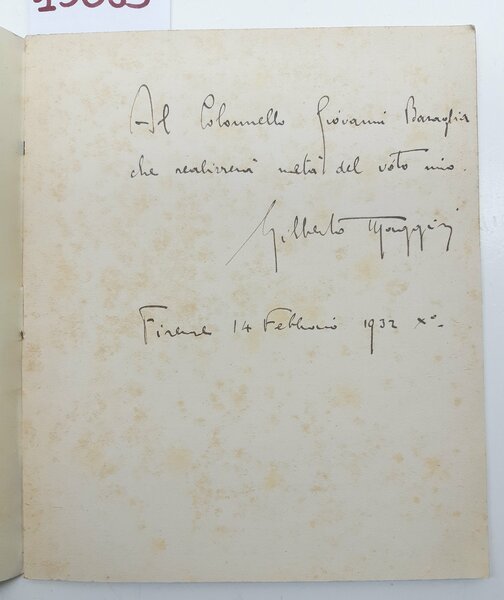 Al Colonnello Giovanni Baraglia
che realizzerà metà del voto mio.
Gilberto Maggini
Firenze 14 Febbraio 1932 X°.